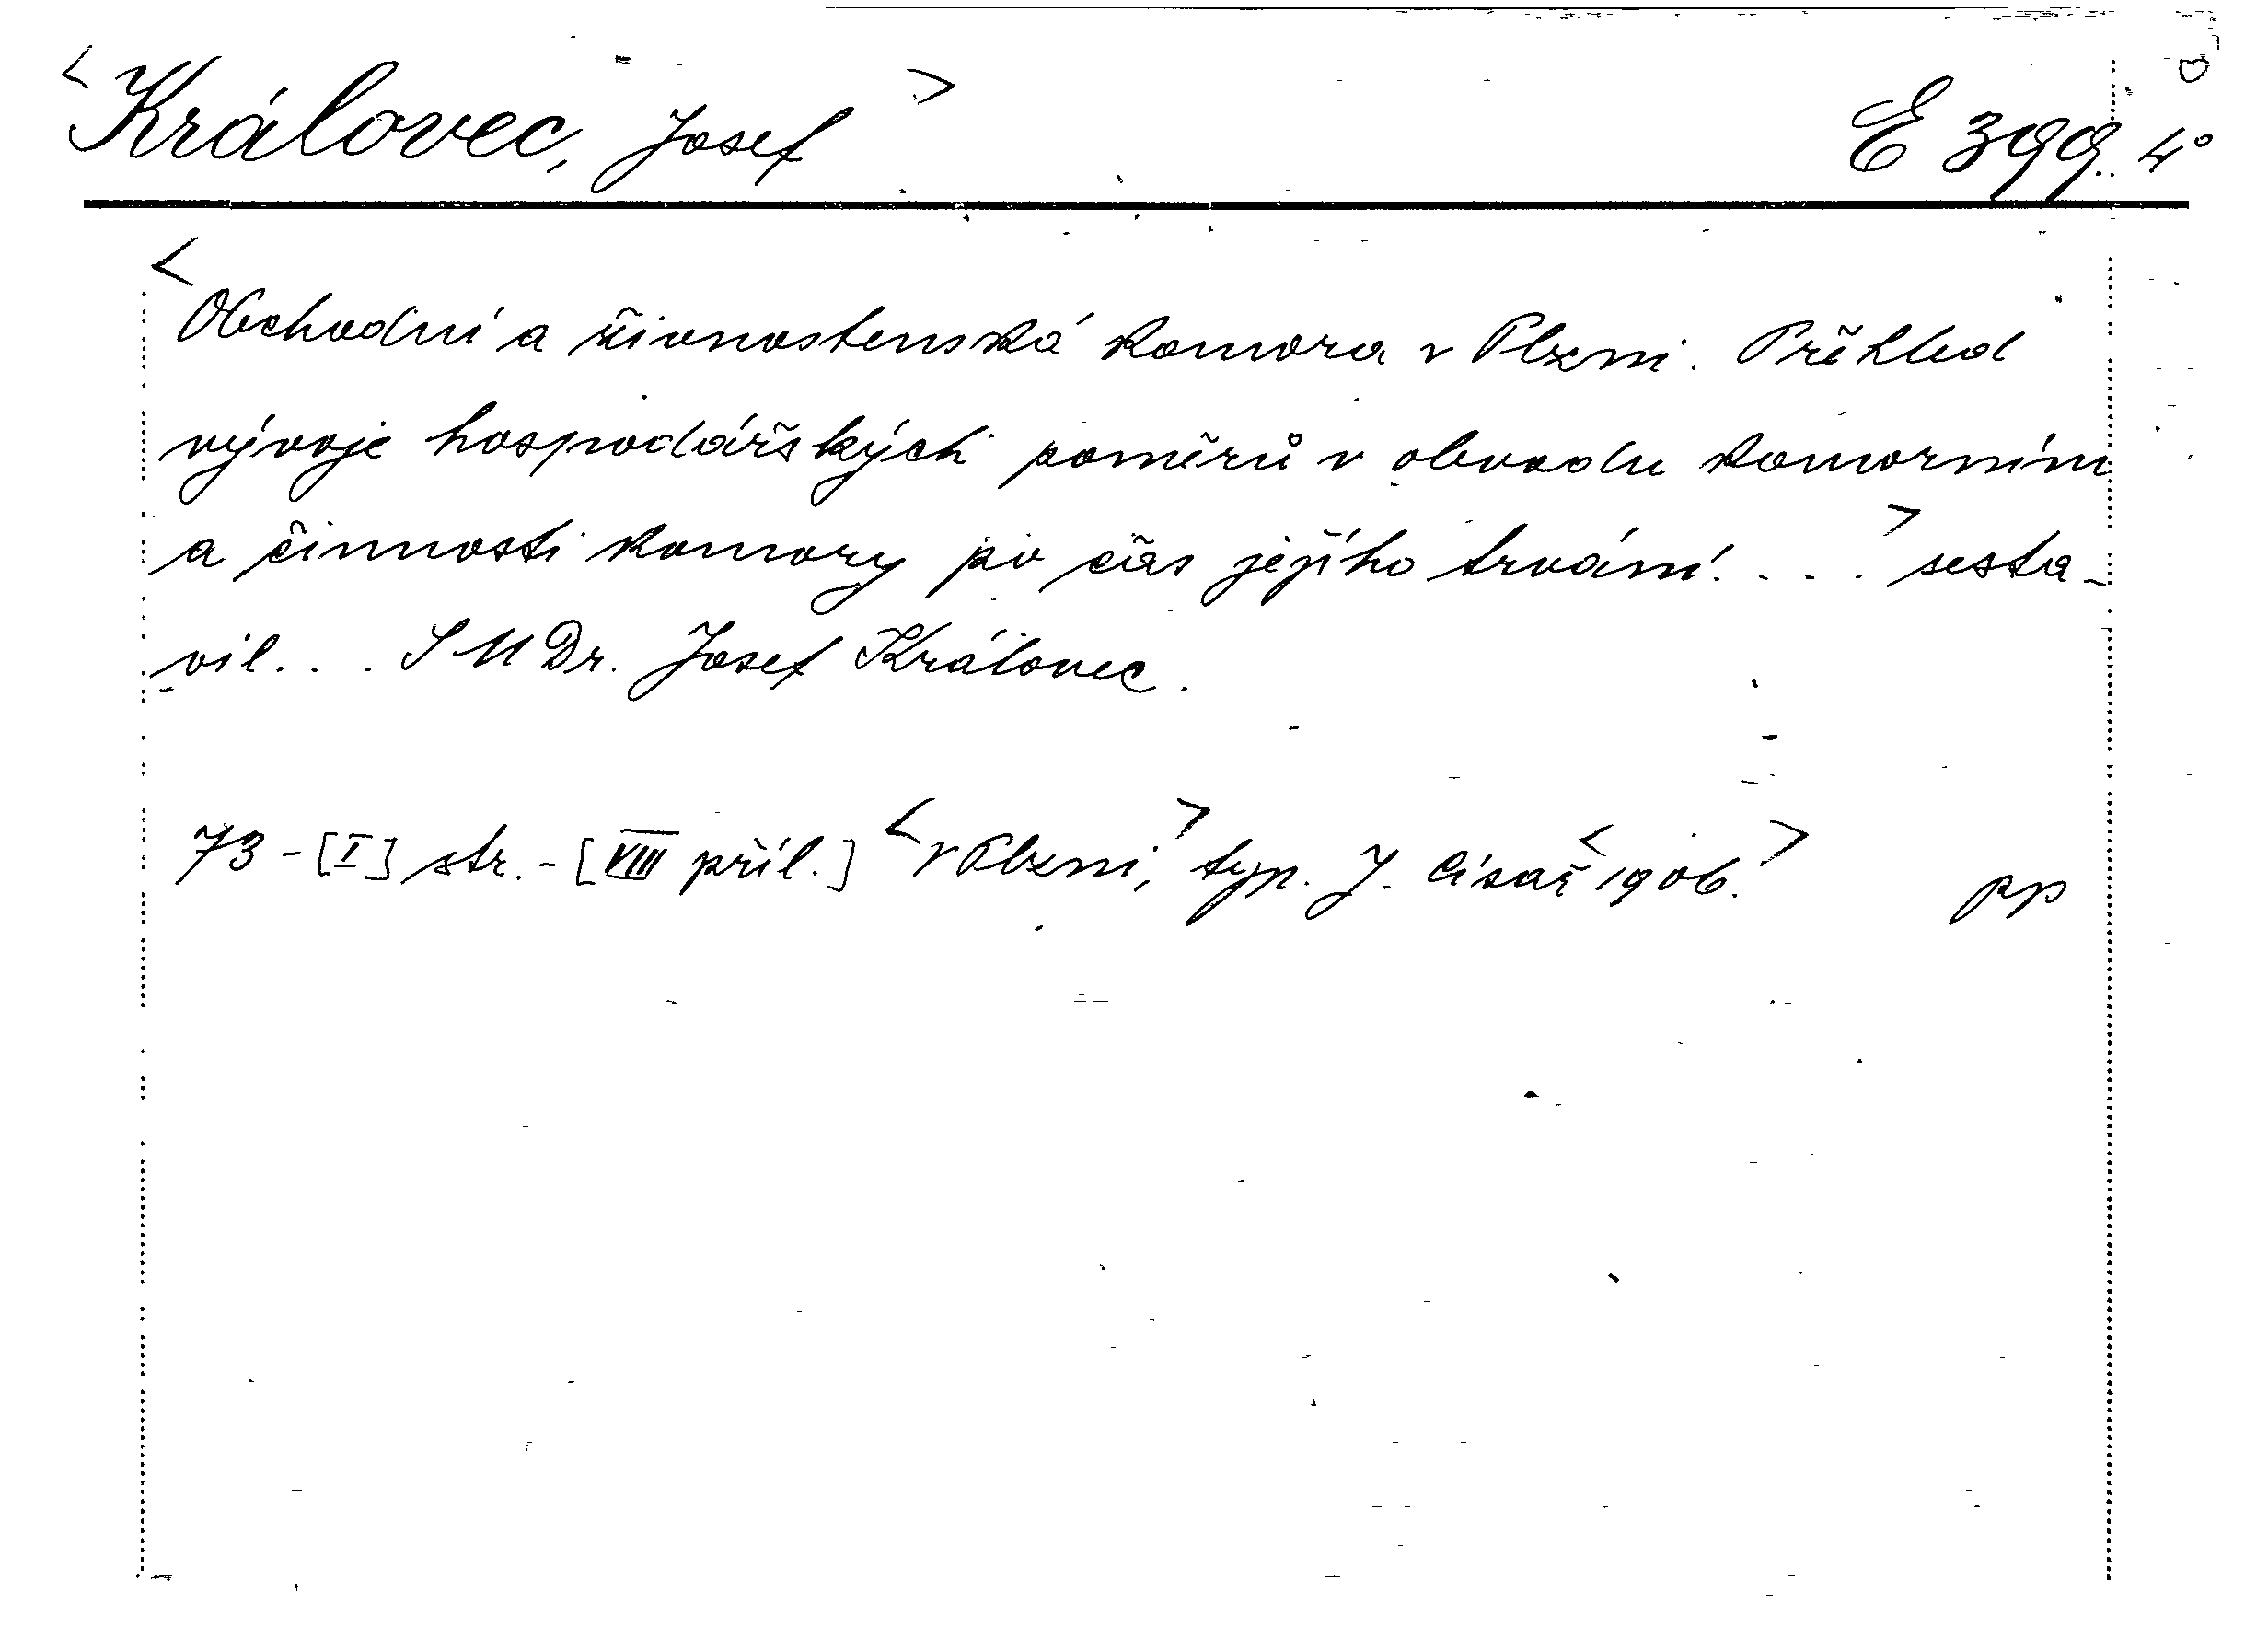 <Královec, Josef> E 399. 4°
<Obchodní a živnostenská komora v Plzni. Přehled
vývoje hospodářských poměrů v obvodu komorním
a činnosti komory po čas jejího trvání. . . .> sesta-
vil. . . JUDr. Josef Královec.
73 - [I] str. - [VIII příl.] <v Plzni,> typ. J. Císař <1906.> pp